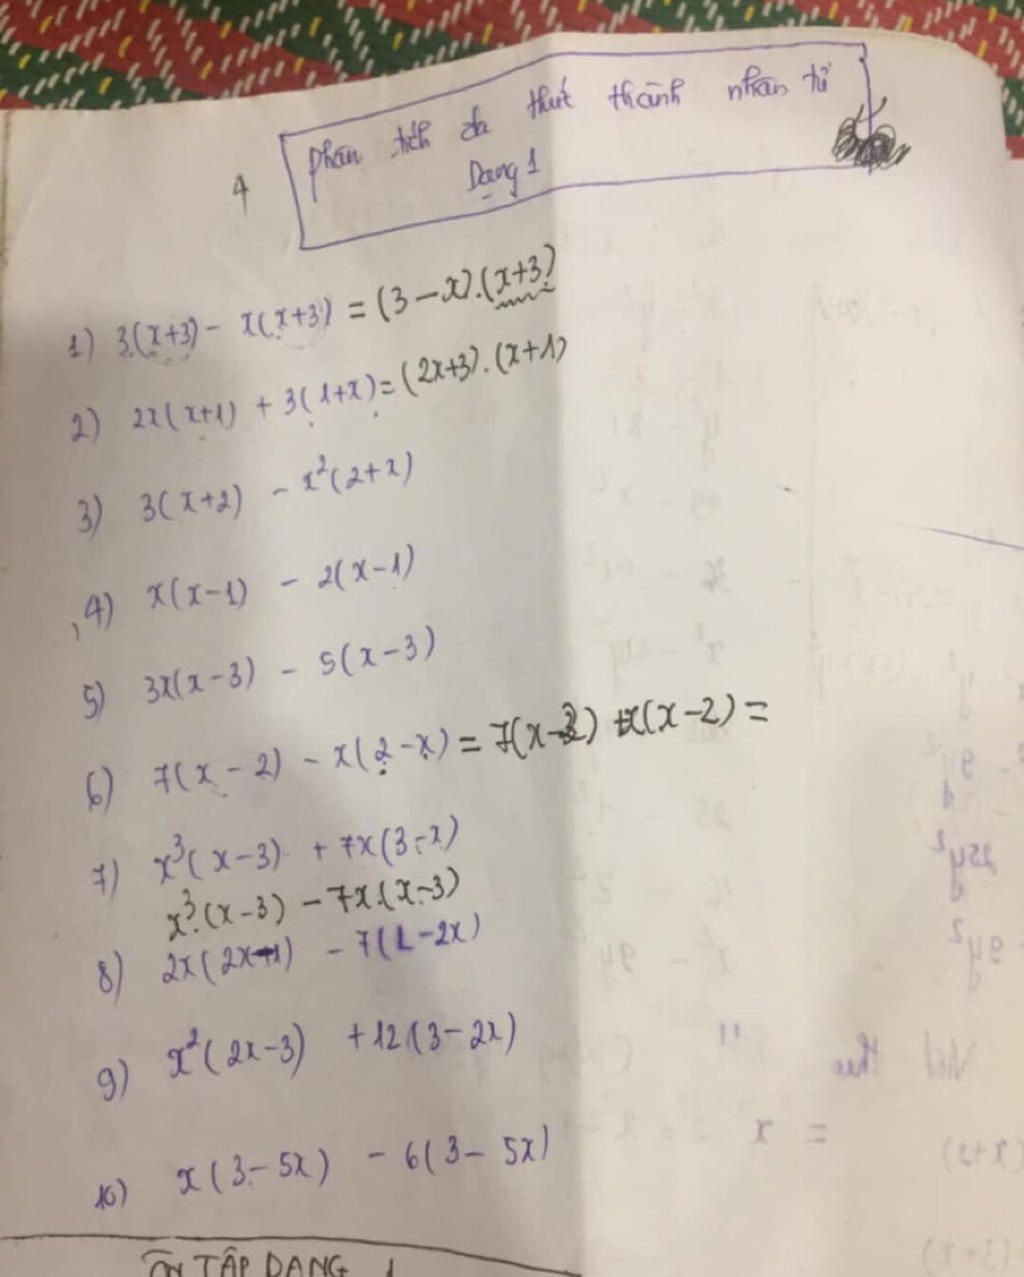 4
phân tích đa thức thành nhân tử
Dạng 1
1) 3(x+3) - x(x+3) = (3-x).(x+3)
2) 2x(x+1) + 3(1+x) = (2x+3).(x+1)
3) 3(x+2) - x²(2+x)
4) x(x-1) - 2(x-1)
5) 3x(x-3) - 5(x-3)
6) 7(x-2) - x(2-x) = 7(x-2) +x(x-2) =
7) x³(x-3) + 7x(3-x)
x³.(x-3) - 7x.(x-3)
8) 2x(2x-1) - 7(1-2x)
9) x²(2x-3) +12(3-2x)
10) x(3-5x) - 6(3-5x)
ÔN TẬP DẠNG 1